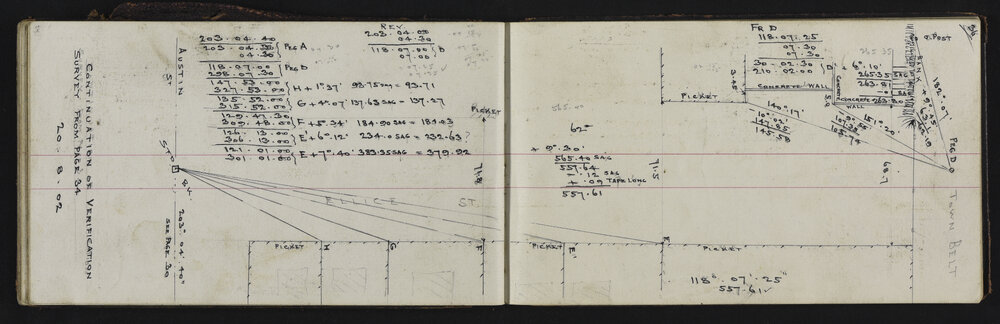 CONTINUATION OF VERIFICATION
SURVEY FROM PAGE 34
20 . 8 . 02
AUSTIN
ST
REV.
203 . 04 . 40
203 . 04 . 30
04 . 30
PEG A
203 . 04 . 00
04 . 30
118 . 07 . 00
07 . 00
118 . 07 . 00
298 . 07 . 30
PEG D
147 . 53 . 00
327 . 53 . 00
H + 1° 37' 93.75 = 93.71
135 . 52 . 00
315 . 52 . 00
G + 4° 07' 137.63 SAG = 137.27
129 . 47 . 30
309 . 48 . 00
F + 5° 34' 184.90 SAG = 184.03
126 . 13 . 00
306 . 13 . 00
E' + 6° 12' 234.0 SAG = 232.63 ?
121 . 01 . 00
301 . 01 . 00
E + 7° 40' 383.35 SAG = 379.92
PICKET
71.8
STD
203° 04' 40"
SEE PAGE 30
ELLICE ST.
PICKET
H
G
F
36
FR D
118 . 07 . 25
07 . 30
07 . 30
30 . 02 . 30
210 . 02 . 00
+ 6° 10'
265.35 SAG
263.81
SAG
CONCRETE 263.80
WALL
CONCRETE
CONCRETE WALL
PICKET
3.45
140° 17'
10° 02'
147.85
145.59
151° 20'
103.74
BANK
O. POST
182° 07'
PEG D
D
68.7
TOWN BELT
62
+ 9° . 30'
565.40 SAG
557.64
- .12 SAG
+ .09 TAPE LONG
557.61
71.5
PICKET
E'
E
PICKET
118° 07' 25"
557.61